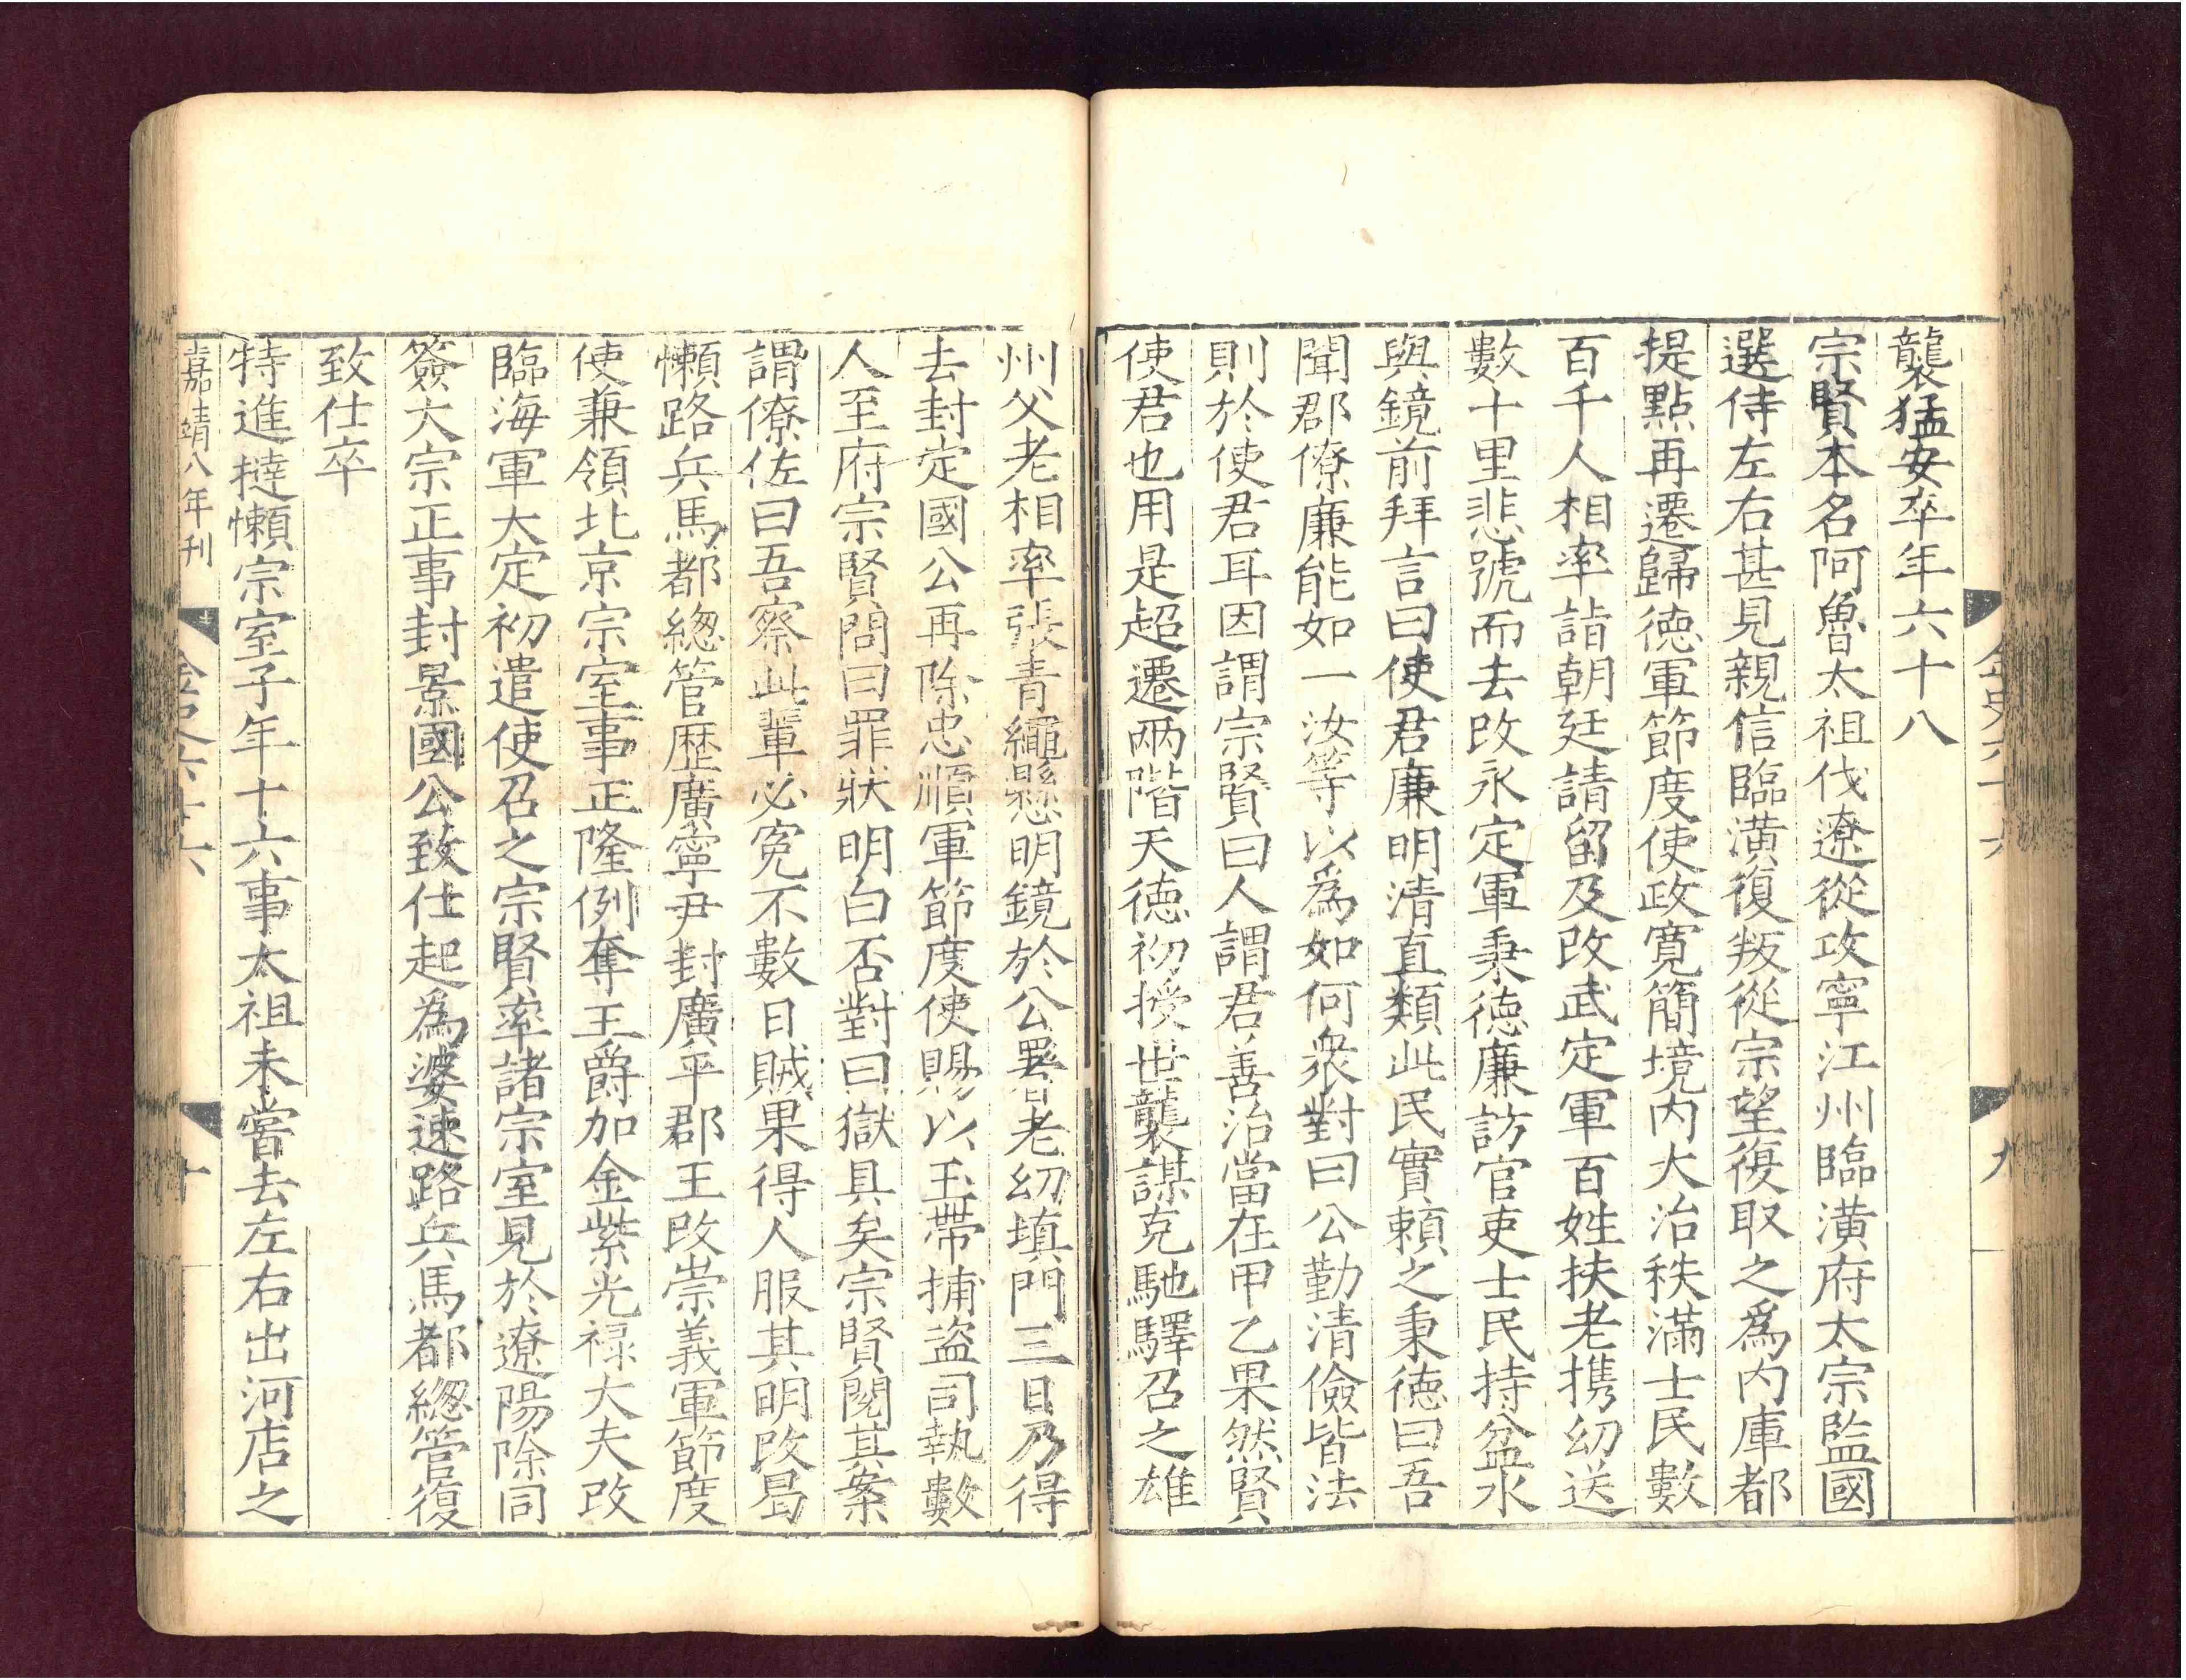 襲猛安卒年六十八
宗賢本名阿魯太祖伐遼從攻寧江州臨潢府太宗監國
選侍左右甚見親信臨潢復叛從宗望復取之爲内庫都
提點再遷歸徳軍節度使政寛簡境内大治秩滿士民數
百千人相率詣朝廷請留及改武定軍百姓扶老攜幼送
數十里悲號而去改永定軍秉徳廉訪官吏士民持盆水
與鏡前拜言曰使君廉明清直類此民實賴之秉徳曰吾
聞郡僚廉能如一汝等以爲如何衆對曰公勤清儉皆法
則於使君耳因謂宗賢曰人謂君善治當在甲乙果然賢
使君也用是超遷兩階天徳初授世襲謀克馳驛召之雄
州父老相率張青繩懸明鏡於公署老幼填門三日乃得
去封定國公再除忠順軍節度使賜以玉帶捕盜司執數
人至府宗賢問曰罪狀明白否對曰獄具矣宗賢閱其案
謂僚佐曰吾察此輩必寃不數日賊果得人服其明改曷
懶路兵馬都總管歴廣寧尹封廣平郡王改崇義軍節度
使兼領北京宗室事正隆例奪王爵加金紫光禄大夫改
臨海軍大定初遣使召之宗賢率諸宗室見於遼陽除同
簽大宗正事封景國公致仕起為婆速路兵馬都總管復
致仕卒
特進撻懶宗室子年十六事太祖未嘗去左右出河店之
嘉靖八年刊
金史六十六
十
金史六十六
九